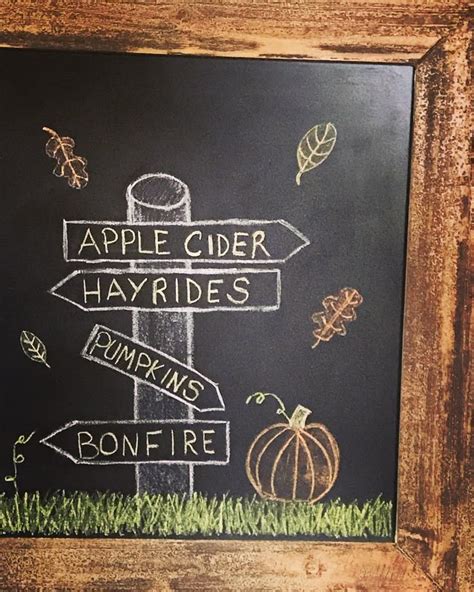 APPLE CIDER
HAYRIDES
PUMPKINS
BONFIRE